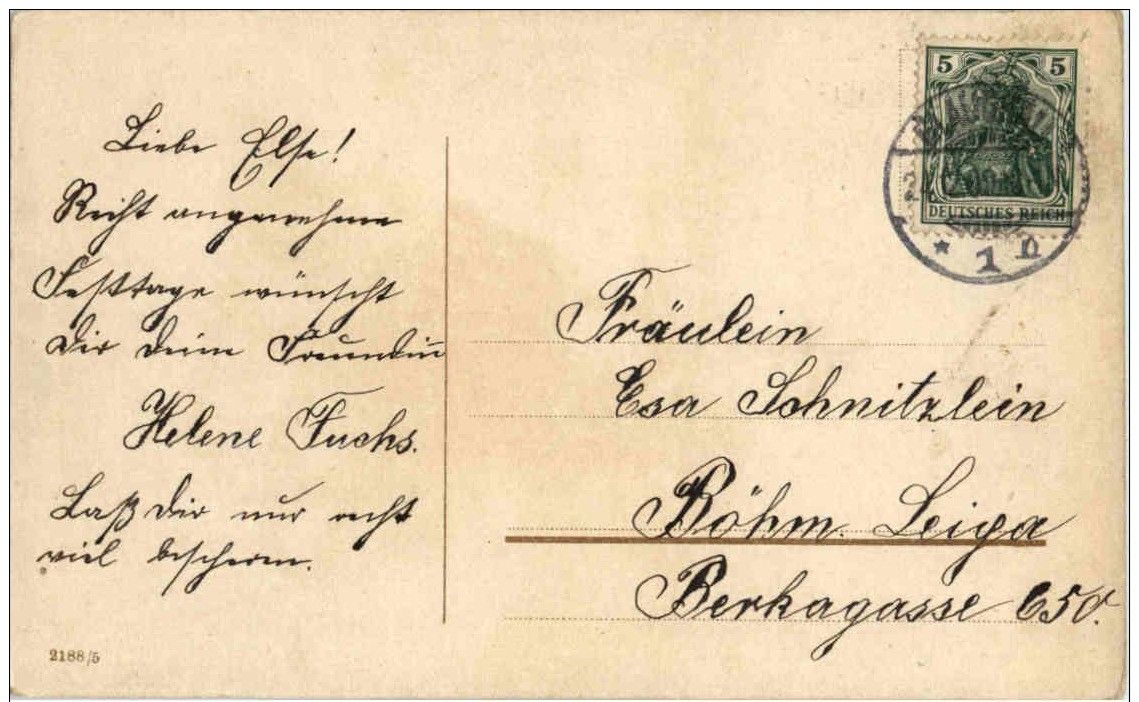 Liebe Else!
Recht angenehme
Festtage wünscht
Dir deine Freundin
Helene Fuchs.
Laß Dir nur recht
viel bescheren.
2188/5
5 5
DEUTSCHES REICH
* 1 n
Fräulein
Esa Schnitzlein
Böhm. Leipa
Berkagasse 650.